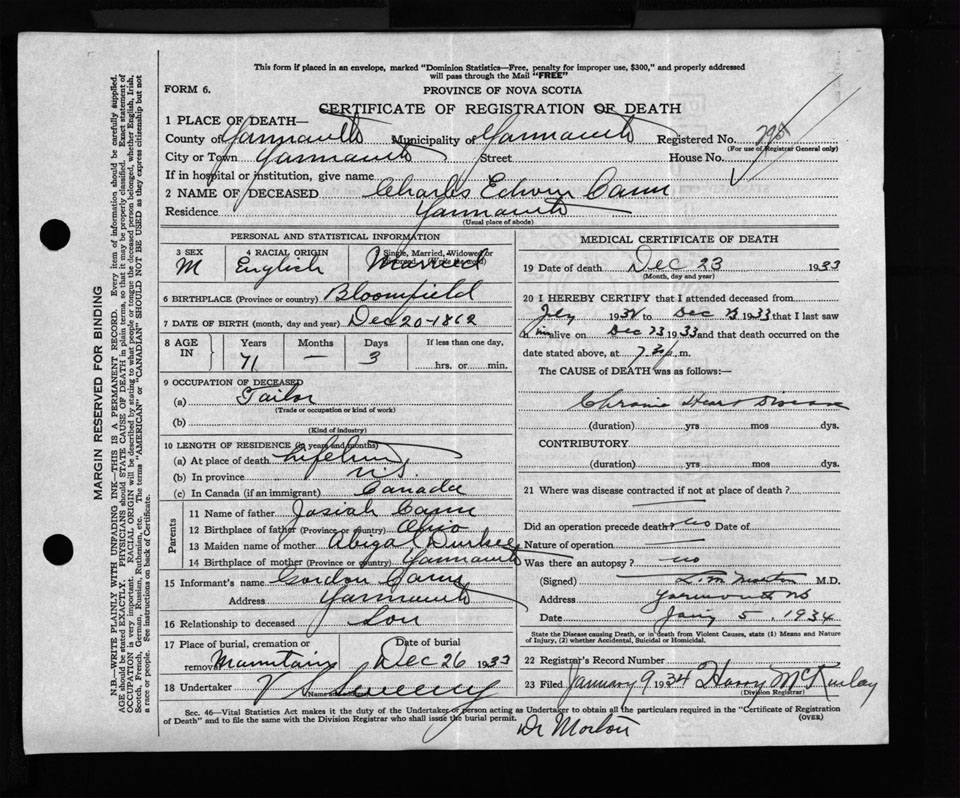 This form if placed in an envelope, marked "Dominion Statistics—Free, penalty for improper use, $300," and properly addressed
will pass through the Mail "FREE"
FORM 6.
PROVINCE OF NOVA SCOTIA
CERTIFICATE OF REGISTRATION OF DEATH
1 PLACE OF DEATH—
County of Yarmouth Municipality of Yarmouth Registered No.
(For use of Registrar General only)
City or Town Yarmouth Street House No.
If in hospital or institution, give name
2 NAME OF DECEASED Charles Edwin Cann
Residence Yarmouth
(Usual place of abode)
PERSONAL AND STATISTICAL INFORMATION
3 SEX M
4 RACIAL ORIGIN English
Single, Married, Widowed or (Write the word) Married
6 BIRTHPLACE (Province or country) Bloomfield
7 DATE OF BIRTH (month, day and year) Dec 20-1862
8 AGE IN Years 71 Months — Days 3 If less than one day, hrs. or min.
9 OCCUPATION OF DECEASED
(a) Tailor
(Trade or occupation or kind of work)
(b)
(Kind of industry)
10 LENGTH OF RESIDENCE (in years and months)
(a) At place of death Lifetime
(b) In province N.S.
(c) In Canada (if an immigrant) Canada
Parents
11 Name of father Josiah Cann
12 Birthplace of father (Province or country) Ohio
13 Maiden name of mother Abigal Durkee
14 Birthplace of mother (Province or country) Yarmouth
15 Informant's name Gordon Cann
Address Yarmouth
16 Relationship to deceased Son
17 Place of burial, cremation or removal Mountain
Date of burial Dec 26 1933
18 Undertaker V S Sweeny
MEDICAL CERTIFICATE OF DEATH
19 Date of death Dec 23 1933
(Month, day and year)
20 I HEREBY CERTIFY that I attended deceased from
July 193 to Dec 23 1933 that I last saw
him alive on Dec 23 1933 and that death occurred on the
date stated above, at 7 m.
The CAUSE of DEATH was as follows:
Chronic Heart Disease
(duration) yrs mos dys.
CONTRIBUTORY
(duration) yrs mos dys.
21 Where was disease contracted if not at place of death?
Did an operation precede death? no Date of
Nature of operation —
Was there an autopsy? no
(Signed) L.M. Morton M.D.
Address Yarmouth NS
Date Jany 5, 1934
State the Disease causing Death, or in death from Violent Causes, state (1) Means and Nature
of Injury, (2) whether Accidental, Suicidal or Homicidal.
22 Registrar's Record Number
23 Filed January 9 1934 Harry McKinlay
(Division Registrar)
Sec. 46—Vital Statistics Act makes it the duty of the Undertaker or person acting as Undertaker to obtain all the particulars required in the "Certificate of Registration
of Death" and to file the same with the Division Registrar who shall issue the burial permit.
(OVER)
Dr Morton
MARGIN RESERVED FOR BINDING
N.B.—WRITE PLAINLY WITH UNFADING INK—THIS IS A PERMANENT RECORD. Every item of information should be carefully supplied.
AGE should be stated EXACTLY. PHYSICIANS should STATE CAUSE OF DEATH in plain terms, so that it may be properly classified. Exact statement of
OCCUPATION is very important. RACIAL ORIGIN will be described by stating to what people or tongue the deceased person belonged, whether English, Irish,
Scotch, French, German, Russian, Ruthenian, etc. The terms "AMERICAN" or "CANADIAN" SHOULD NOT BE USED as they express citizenship but not
a race or people. See instructions on back of Certificate.